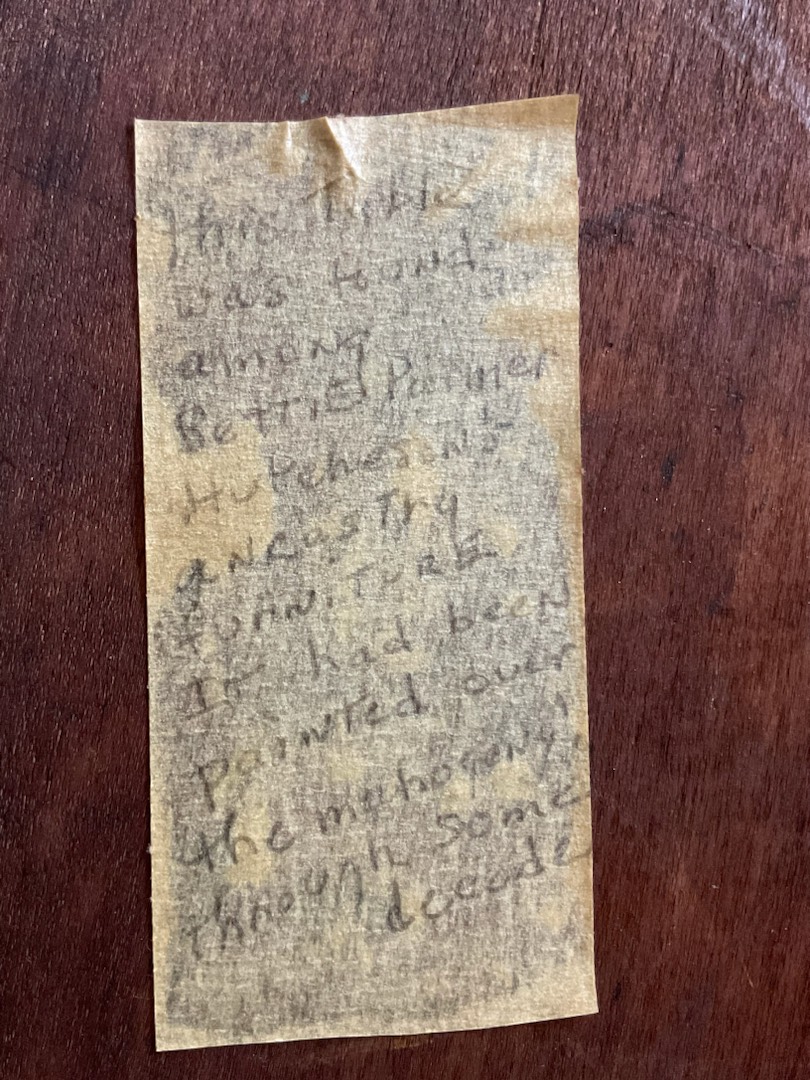 This Table
was found
among
Bettie Palmer
Hutcheson's
ancustry
furniture.
It had been
painted over
the mahogany,
through some
decade